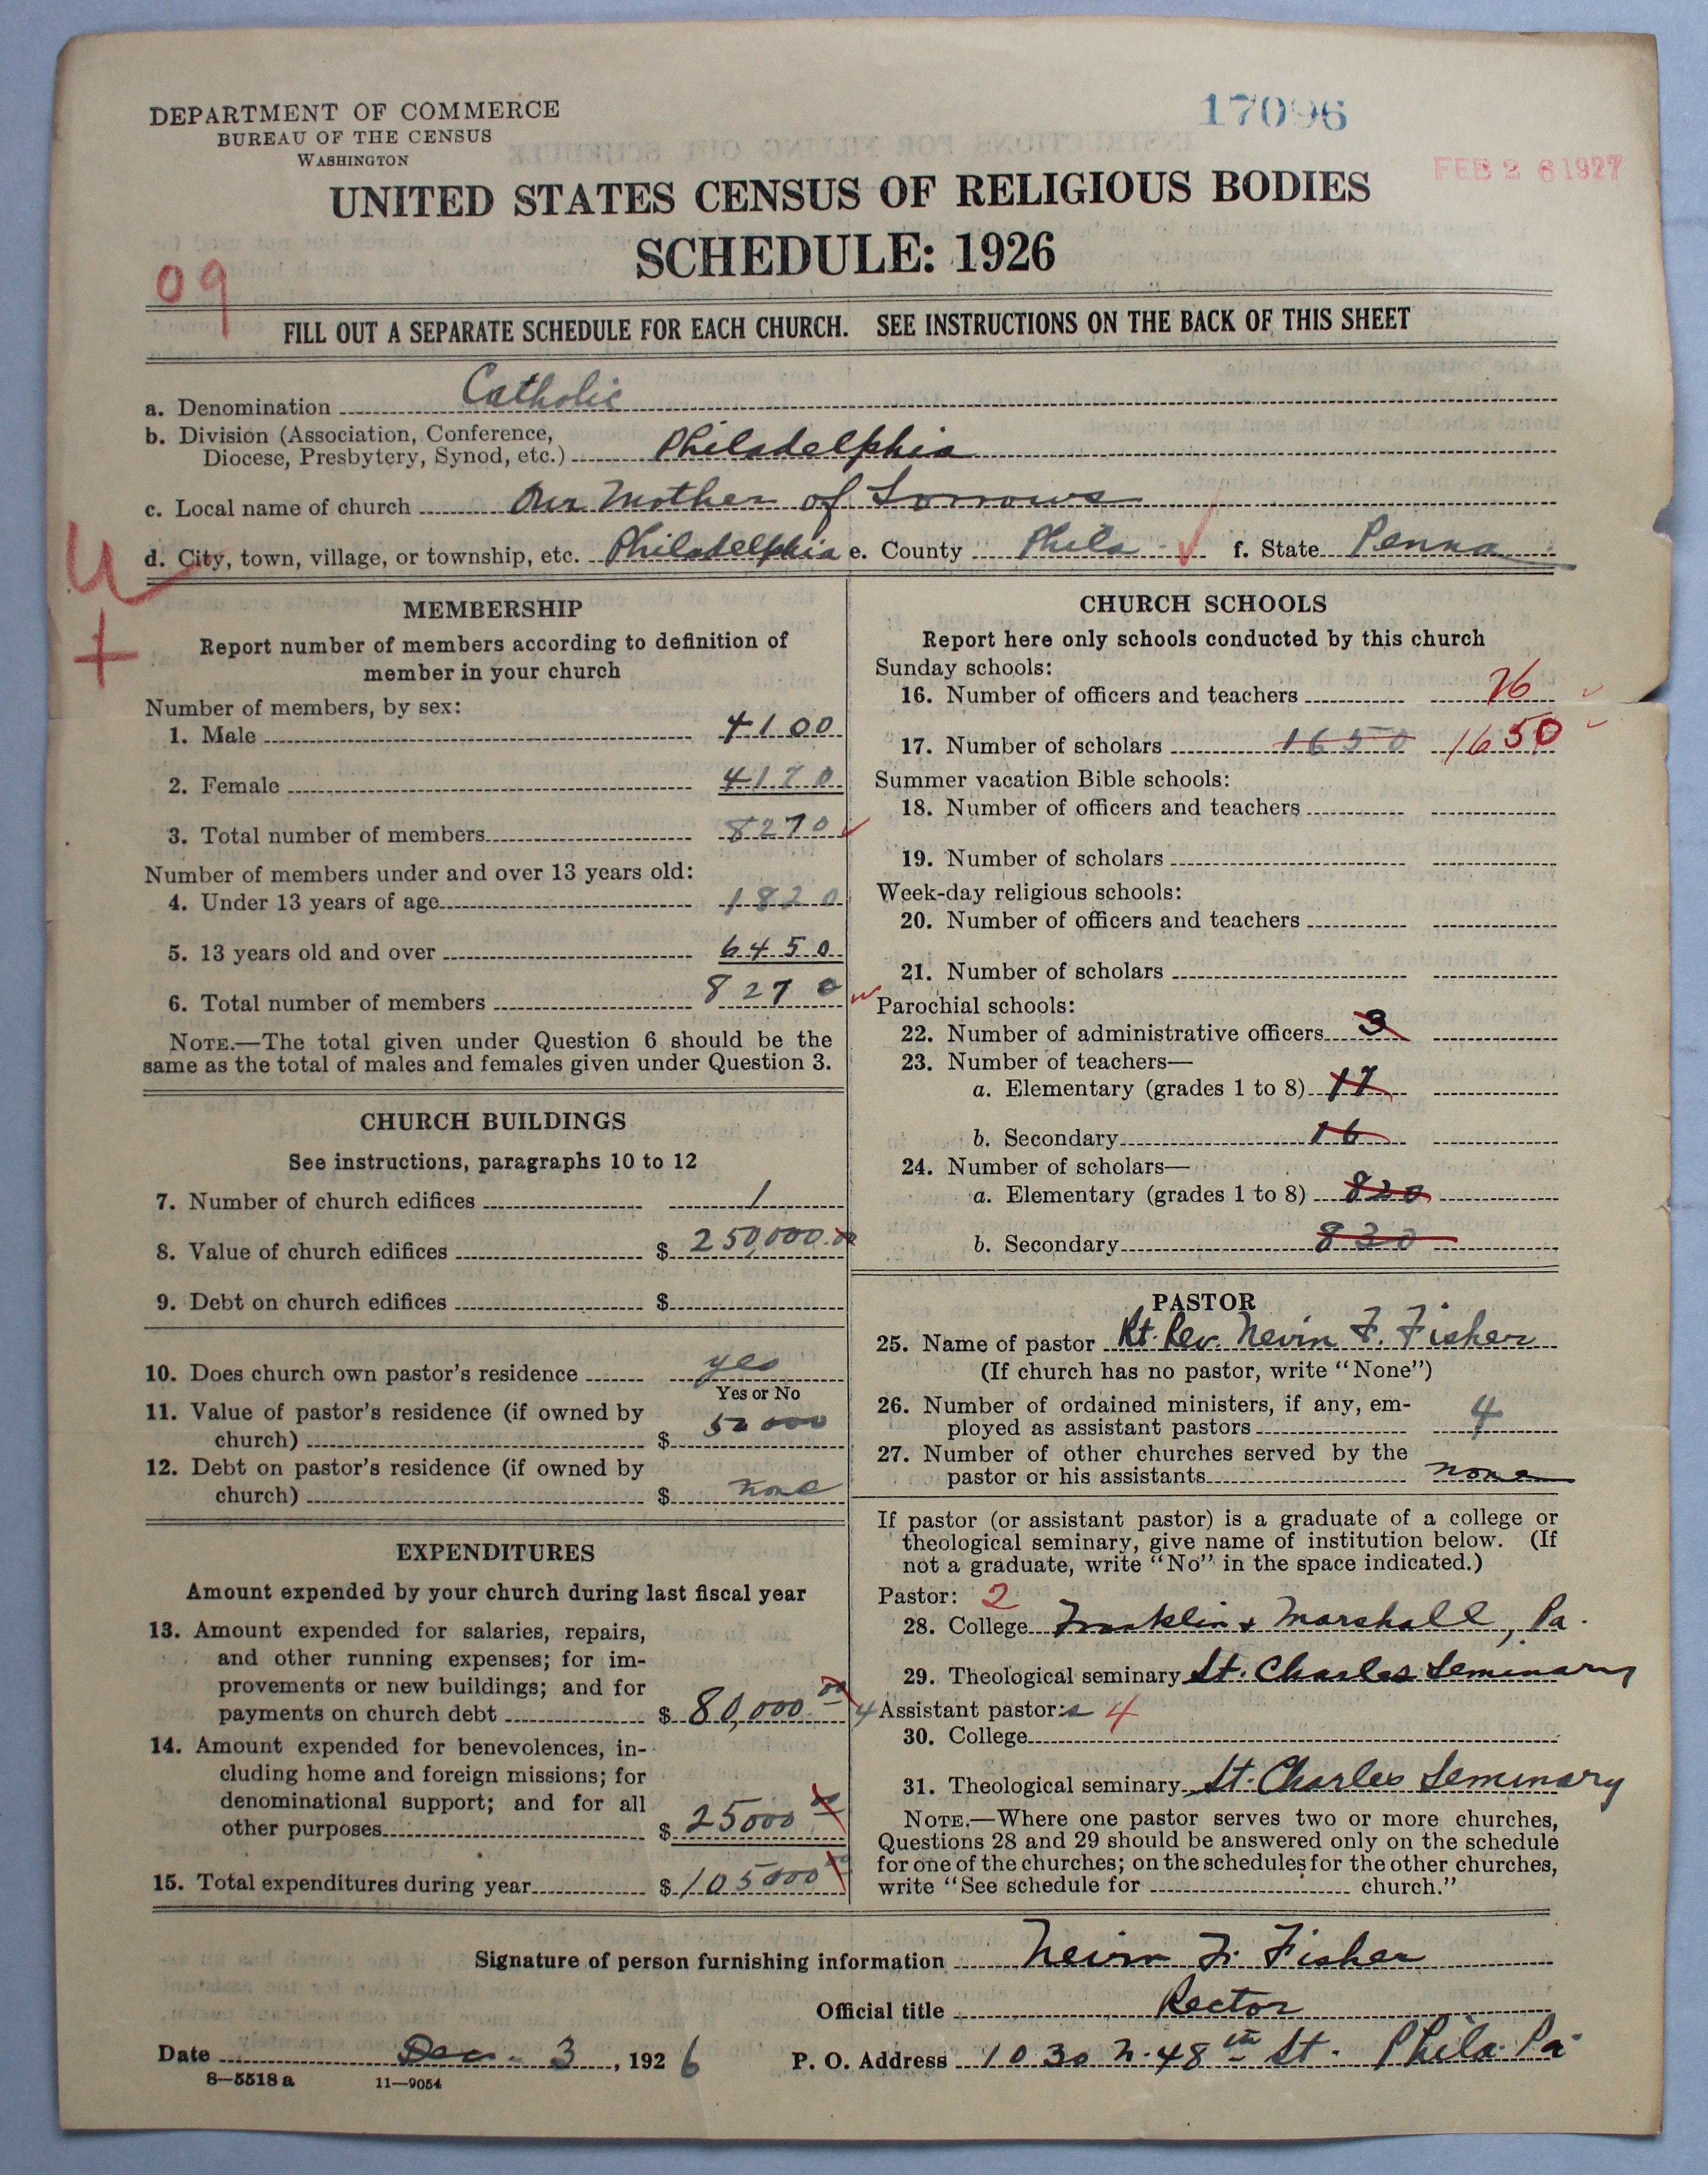 DEPARTMENT OF COMMERCE
BUREAU OF THE CENSUS
WASHINGTON
17096
FEB 26 1927
UNITED STATES CENSUS OF RELIGIOUS BODIES
SCHEDULE: 1926
09
FILL OUT A SEPARATE SCHEDULE FOR EACH CHURCH. SEE INSTRUCTIONS ON THE BACK OF THIS SHEET
a. Denomination Catholic
b. Division (Association, Conference,
Diocese, Presbytery, Synod, etc.) Philadelphia
c. Local name of church Our Mother of Sorrows
d. City, town, village, or township, etc. Philadelphia e. County Phila f. State Penna
U
+
MEMBERSHIP
Report number of members according to definition of
member in your church
Number of members, by sex:
1. Male 4100
2. Female 4170
3. Total number of members 8270
Number of members under and over 13 years old:
4. Under 13 years of age 1820
5. 13 years old and over 6450
6. Total number of members 8270
NOTE.—The total given under Question 6 should be the
same as the total of males and females given under Question 3.
CHURCH BUILDINGS
See instructions, paragraphs 10 to 12
7. Number of church edifices 1
8. Value of church edifices $ 250,000.00
9. Debt on church edifices $
10. Does church own pastor's residence yes
Yes or No
11. Value of pastor's residence (if owned by
church) $ 50000
12. Debt on pastor's residence (if owned by
church) $ none
EXPENDITURES
Amount expended by your church during last fiscal year
13. Amount expended for salaries, repairs,
and other running expenses; for im-
provements or new buildings; and for
payments on church debt $ 80,000 00
14. Amount expended for benevolences, in-
cluding home and foreign missions; for
denominational support; and for all
other purposes $ 25000 00
15. Total expenditures during year $ 105000 00
CHURCH SCHOOLS
Report here only schools conducted by this church
Sunday schools:
16. Number of officers and teachers 26
17. Number of scholars 1650 1650
Summer vacation Bible schools:
18. Number of officers and teachers
19. Number of scholars
Week-day religious schools:
20. Number of officers and teachers
21. Number of scholars
Parochial schools:
22. Number of administrative officers 3
23. Number of teachers—
a. Elementary (grades 1 to 8) 17
b. Secondary 16
24. Number of scholars—
a. Elementary (grades 1 to 8) 820
b. Secondary 830
PASTOR
25. Name of pastor Rt. Rev. Nevin F. Fisher
(If church has no pastor, write "None")
26. Number of ordained ministers, if any, em-
ployed as assistant pastors 4
27. Number of other churches served by the
pastor or his assistants none
If pastor (or assistant pastor) is a graduate of a college or
theological seminary, give name of institution below. (If
not a graduate, write "No" in the space indicated.)
Pastor: 2
28. College Franklin & Marshall, Pa.
29. Theological seminary St. Charles Seminary
4 Assistant pastor:s 4
30. College
31. Theological seminary St. Charles Seminary
NOTE.—Where one pastor serves two or more churches,
Questions 28 and 29 should be answered only on the schedule
for one of the churches; on the schedules for the other churches,
write "See schedule for church."
Signature of person furnishing information Nevin F. Fisher
Official title Rector
Date Dec. 3, 1926 P. O. Address 1030 N. 48th St. Phila. Pa
8—5518 a 11—9054